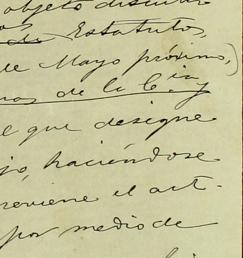 objeto discutir
de Estatutos,
de Mayo próximo,)
nas de la C.ia y
el que designe
jo, haciéndose
previene el art-
por medio de